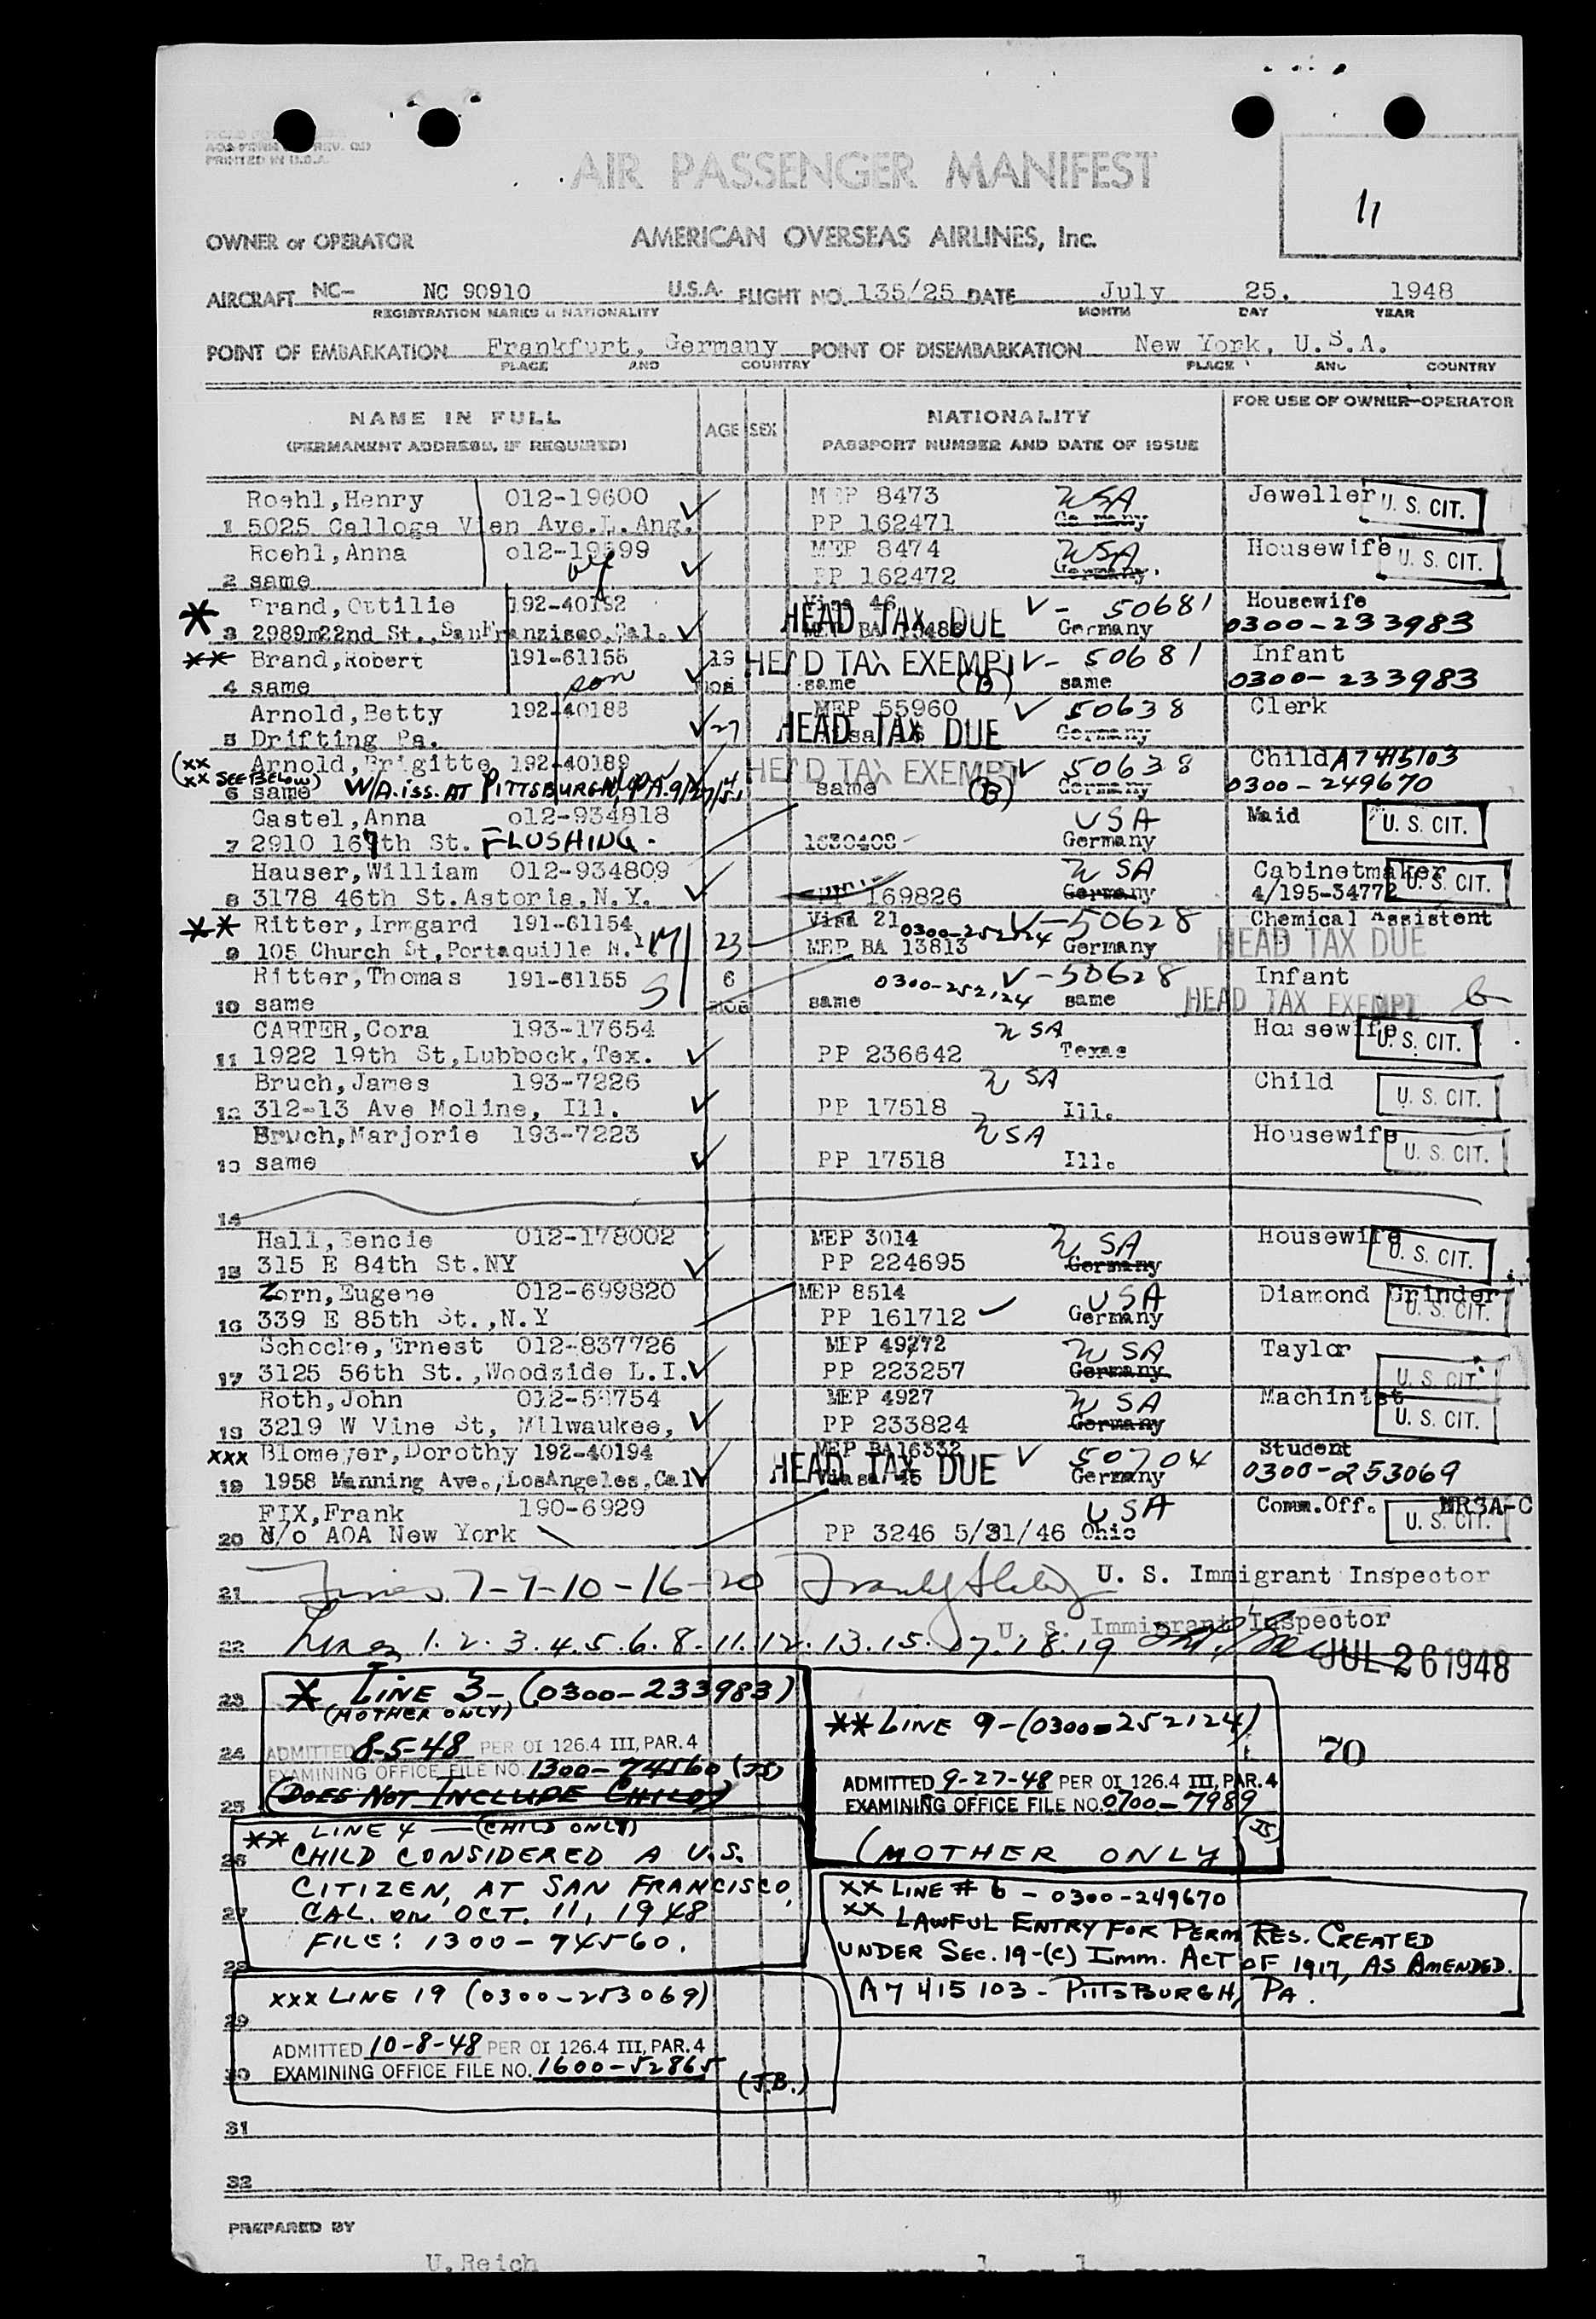 PRINTED IN U.S.A.
AIR PASSENGER MANIFEST
11
OWNER or OPERATOR AMERICAN OVERSEAS AIRLINES, Inc.
AIRCRAFT NC- NC 90910 U.S.A. FLIGHT NO. 135/25 DATE July 25. 1948
REGISTRATION MARKS & NATIONALITY MONTH DAY YEAR
POINT OF EMBARKATION Frankfurt, Germany POINT OF DISEMBARKATION New York, U.S.A.
PLACE AND COUNTRY PLACE AND COUNTRY
NAME IN FULL AGE SEX NATIONALITY FOR USE OF OWNER-OPERATOR
(PERMANENT ADDRESS, IF REQUIRED) PASSPORT NUMBER AND DATE OF ISSUE
Roehl, Henry 012-19600 MEP 8473 USA Jeweller U. S. CIT.
1 5025 Calloga Vien Ave.L.Ang. PP 162471 Germany
Roehl, Anna MEP 8474 USA Housewife U. S. CIT.
2 same PP 162472 Germany.
* Brand, Ottilie 192-40192 Visa 46 HEAD TAX DUE V- 50681 Housewife
3 2989m22nd St., SanFranzisco, Cal. Germany 0300-233983
** Brand, Robert 191-61156 19 HEAD TAX EXEMPT V- 50681 Infant
4 same son mos same (B) same 0300-233983
Arnold, Betty 192-40188 MEP 55960 V 50638 Clerk
5 Drifting Pa. 27 HEAD TAX DUE Germany
(xx Arnold, Brigitte 192-40189 HEAD TAX EXEMPT V 50638 Child A7415103
xx SEE BELOW) 6 same W/A. iss. AT PITTSBURGH, PA. same (B) Germany 0300-249670
Gastel, Anna 012-934818 USA Maid U. S. CIT.
7 2910 167th St. FLUSHING. 1630408 Germany
Hauser, William 012-934809 USA Cabinetmaker U. S. CIT.
8 3178 46th St. Astoria, N.Y. PP 169826 Germany 4/195-34772
** Ritter, Irmgard 191-61154 Visa 21 0300-252124 V-50628 Chemical Assistent
9 105 Church St, Portaquille N. M 23 MEP BA 13813 Germany HEAD TAX DUE
Ritter, Thomas 191-61155 S 6 0300-252124 V-50628 Infant
10 same mos same same HEAD TAX EXEMPT
CARTER, Cora 193-17654 USA Housewife U. S. CIT.
11 1922 19th St, Lubbock, Tex. PP 236642 Texas
Bruch, James 193-7226 USA Child
12 312-13 Ave Moline, Ill. PP 17518 Ill. U. S. CIT.
Bruch, Marjorie 193-7223 USA Housewife
13 same PP 17518 Ill. U. S. CIT.
14
Hall, Bencie 012-178002 MEP 3014 USA Housewife
15 315 E 84th St.NY PP 224695 Germany U. S. CIT.
Zorn, Eugene 012-699820 MEP 8514 USA Diamond Grinder
16 339 E 85th St.,N.Y PP 161712 Germany U. S. CIT.
Schocke, Ernest 012-837726 MEP 49272 USA Taylor
17 3125 56th St.,Woodside L.I. PP 223257 Germany U. S. CIT.
Roth, John MEP 4927 USA Machinist
18 3219 W Vine St, Milwaukee, PP 233824 Germany U. S. CIT.
xxx Blomeyer, Dorothy 192-40194 MEP BA16332 V 50704 Student
19 1958 Manning Ave., LosAngeles, Cal HEAD TAX DUE Visa 45 Germany 0300-253069
FIX, Frank 190-6929 USA Comm.Off. MR3A-C
20 C/o AOA New York PP 3246 5/31/46 Ohio U. S. CIT.
21 Lines 7-9-10-16-20 U. S. Immigrant Inspector
U. S. Immigrant Inspector
22 Lines 1.2.3.4.5.6.8.11.12.13.15.17.18.19 JUL 26 1948
23 * LINE 3-(0300-233983)
(MOTHER ONLY)
24 ADMITTED 8-5-48 PER OI 126.4 III, PAR. 4
EXAMINING OFFICE FILE NO. 1300-74560 (JS)
25 (DOES NOT INCLUDE CHILD)
** LINE 9-(0300-252124)
70
ADMITTED 9-27-48 PER OI 126.4 III, PAR. 4
EXAMINING OFFICE FILE NO. 0700-7989
(MOTHER ONLY) (JS)
** LINE 4 — (CHILD ONLY)
26 CHILD CONSIDERED A U.S.
CITIZEN, AT SAN FRANCISCO,
27 CAL. ON OCT. 11, 1948
FILE: 1300-74560.
28
xx LINE # 6 - 0300-249670
xx LAWFUL ENTRY FOR PERM RES. CREATED
UNDER SEC. 19-(C) IMM. ACT OF 1917, AS AMENDED.
A7 415 103 - PITTSBURGH, PA.
xxx LINE 19 (0300-253069)
29
ADMITTED 10-8-48 PER OI 126.4 III, PAR. 4
30 EXAMINING OFFICE FILE NO. 1600-52865 (J.B.)
31
32
PREPARED BY
U. Reich 1 1